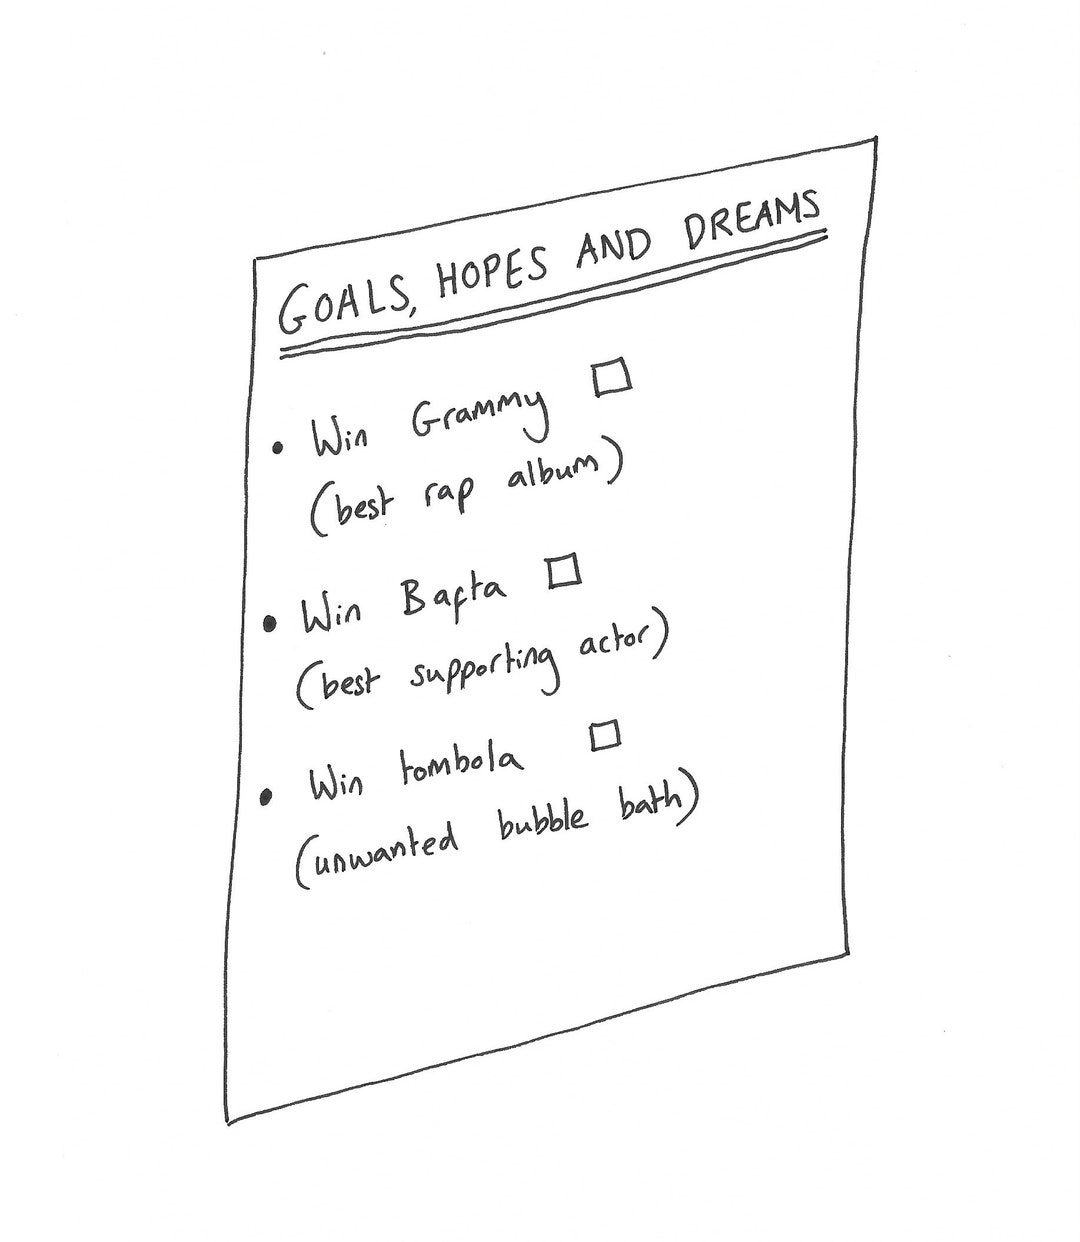 GOALS, HOPES AND DREAMS
• Win Grammy □
(best rap album)
• Win Bafta □
(best supporting actor)
• Win tombola □
(unwanted bubble bath)